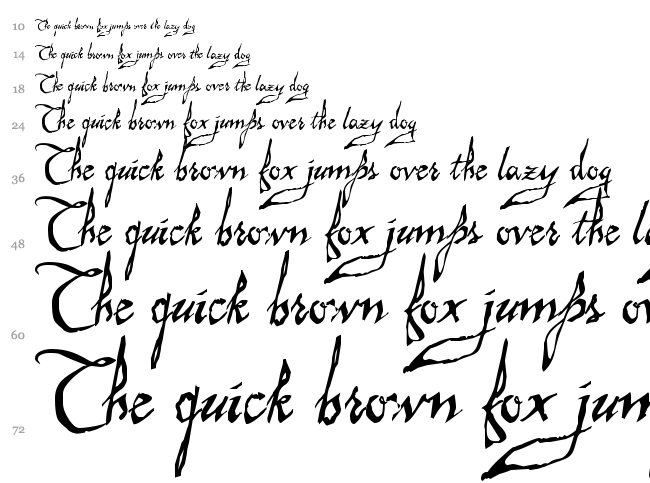 10 The quick brown fox jumps over the lazy dog
14 The quick brown fox jumps over the lazy dog
18 The quick brown fox jumps over the lazy dog
24 The quick brown fox jumps over the lazy dog
36 The quick brown fox jumps over the lazy dog
48 The quick brown fox jumps over the l
60 The quick brown fox jumps ov
72 The quick brown fox jum